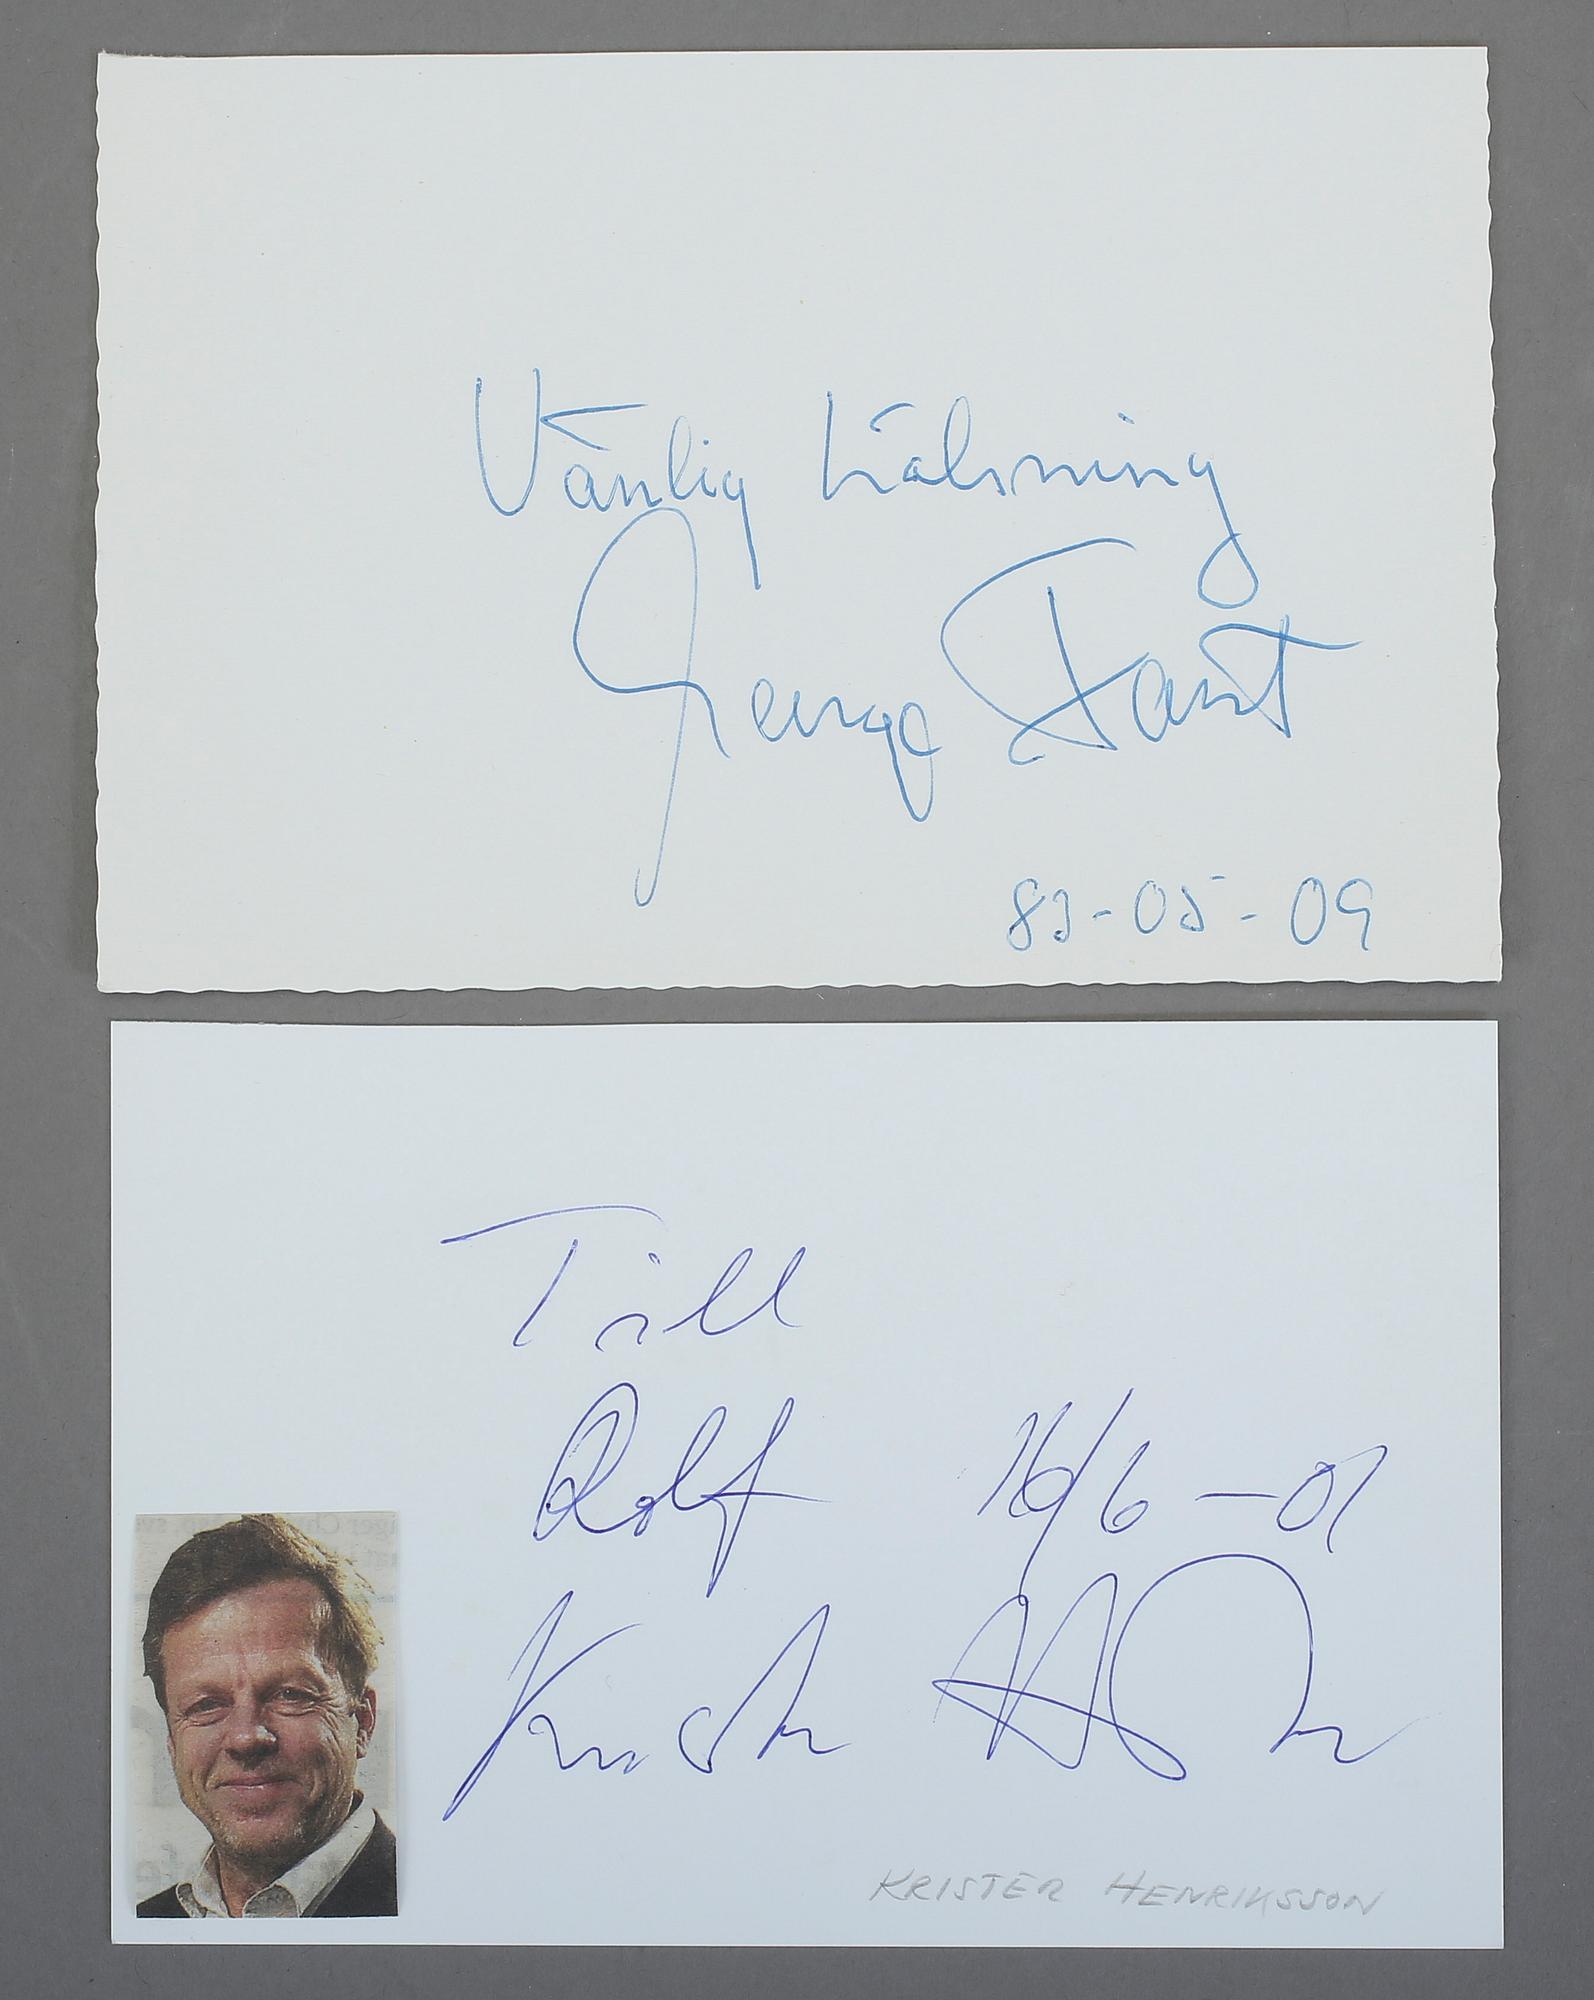 Vänlig hälsning
George Fant
83-05-09
Till
Rolf 16/6-07
Krister H
KRISTER HENRIKSSON